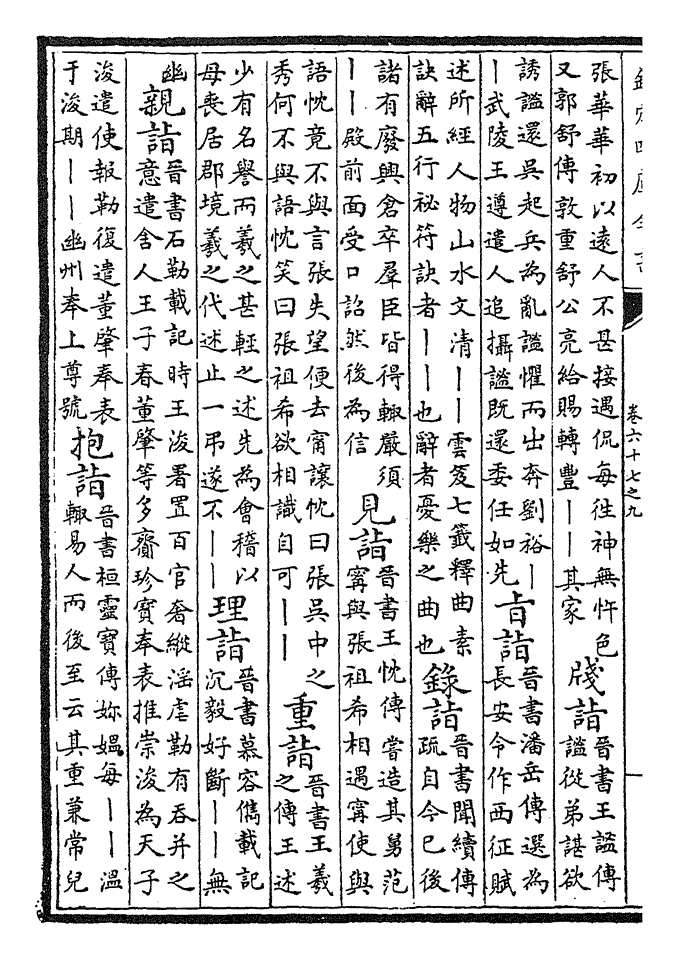 卷六十七之九
張華華初以遠人不甚接遇侃每往神無忤色
又郭舒傳敦重舒公亮給賜轉豐｜｜其家
牋詣
晉書王謐傳
謐從弟諶欲
誘謐還吳起兵為亂謐懼而出奔劉裕｜
｜武陵王遵遣人追攝謐既還委任如先
㫖詣
晉書潘岳傳選為
長安令作西征賦
述所經人物山水文清｜｜雲笈七籤釋曲素
訣辭五行祕符訣者｜｜也辭者憂樂之曲也
錄詣
晉書聞續傳
疏自今已後
諸有廢興倉卒羣臣皆得輙嚴須
｜｜殿前面受口詔然後為信
見詣
晉書王忱傳嘗造其舅范
甯與張祖希相遇甯使與
語忱竟不與言張失望便去甯讓忱曰張吳中之
秀何不與語忱笑曰張祖希欲相識自可｜｜
重詣
晉書王羲
之傳王述
少有名譽而羲之甚輕之述先為會稽以
母喪居郡境羲之代述止一弔遂不｜｜
理詣
晉書慕容儁載記
沉毅好斷｜｜無
幽
親詣
晉書石勒載記時王浚署置百官奢縱淫虐勒有吞并之
意遣舍人王子春董肇等多齎珍寶奉表推崇浚為天子
浚遣使報勒復遣董肇奉表
于浚期｜｜幽州奉上尊號
抱詣
晉書桓靈寶傳妳媼每｜｜溫
輙易人而後至云其重兼常兒